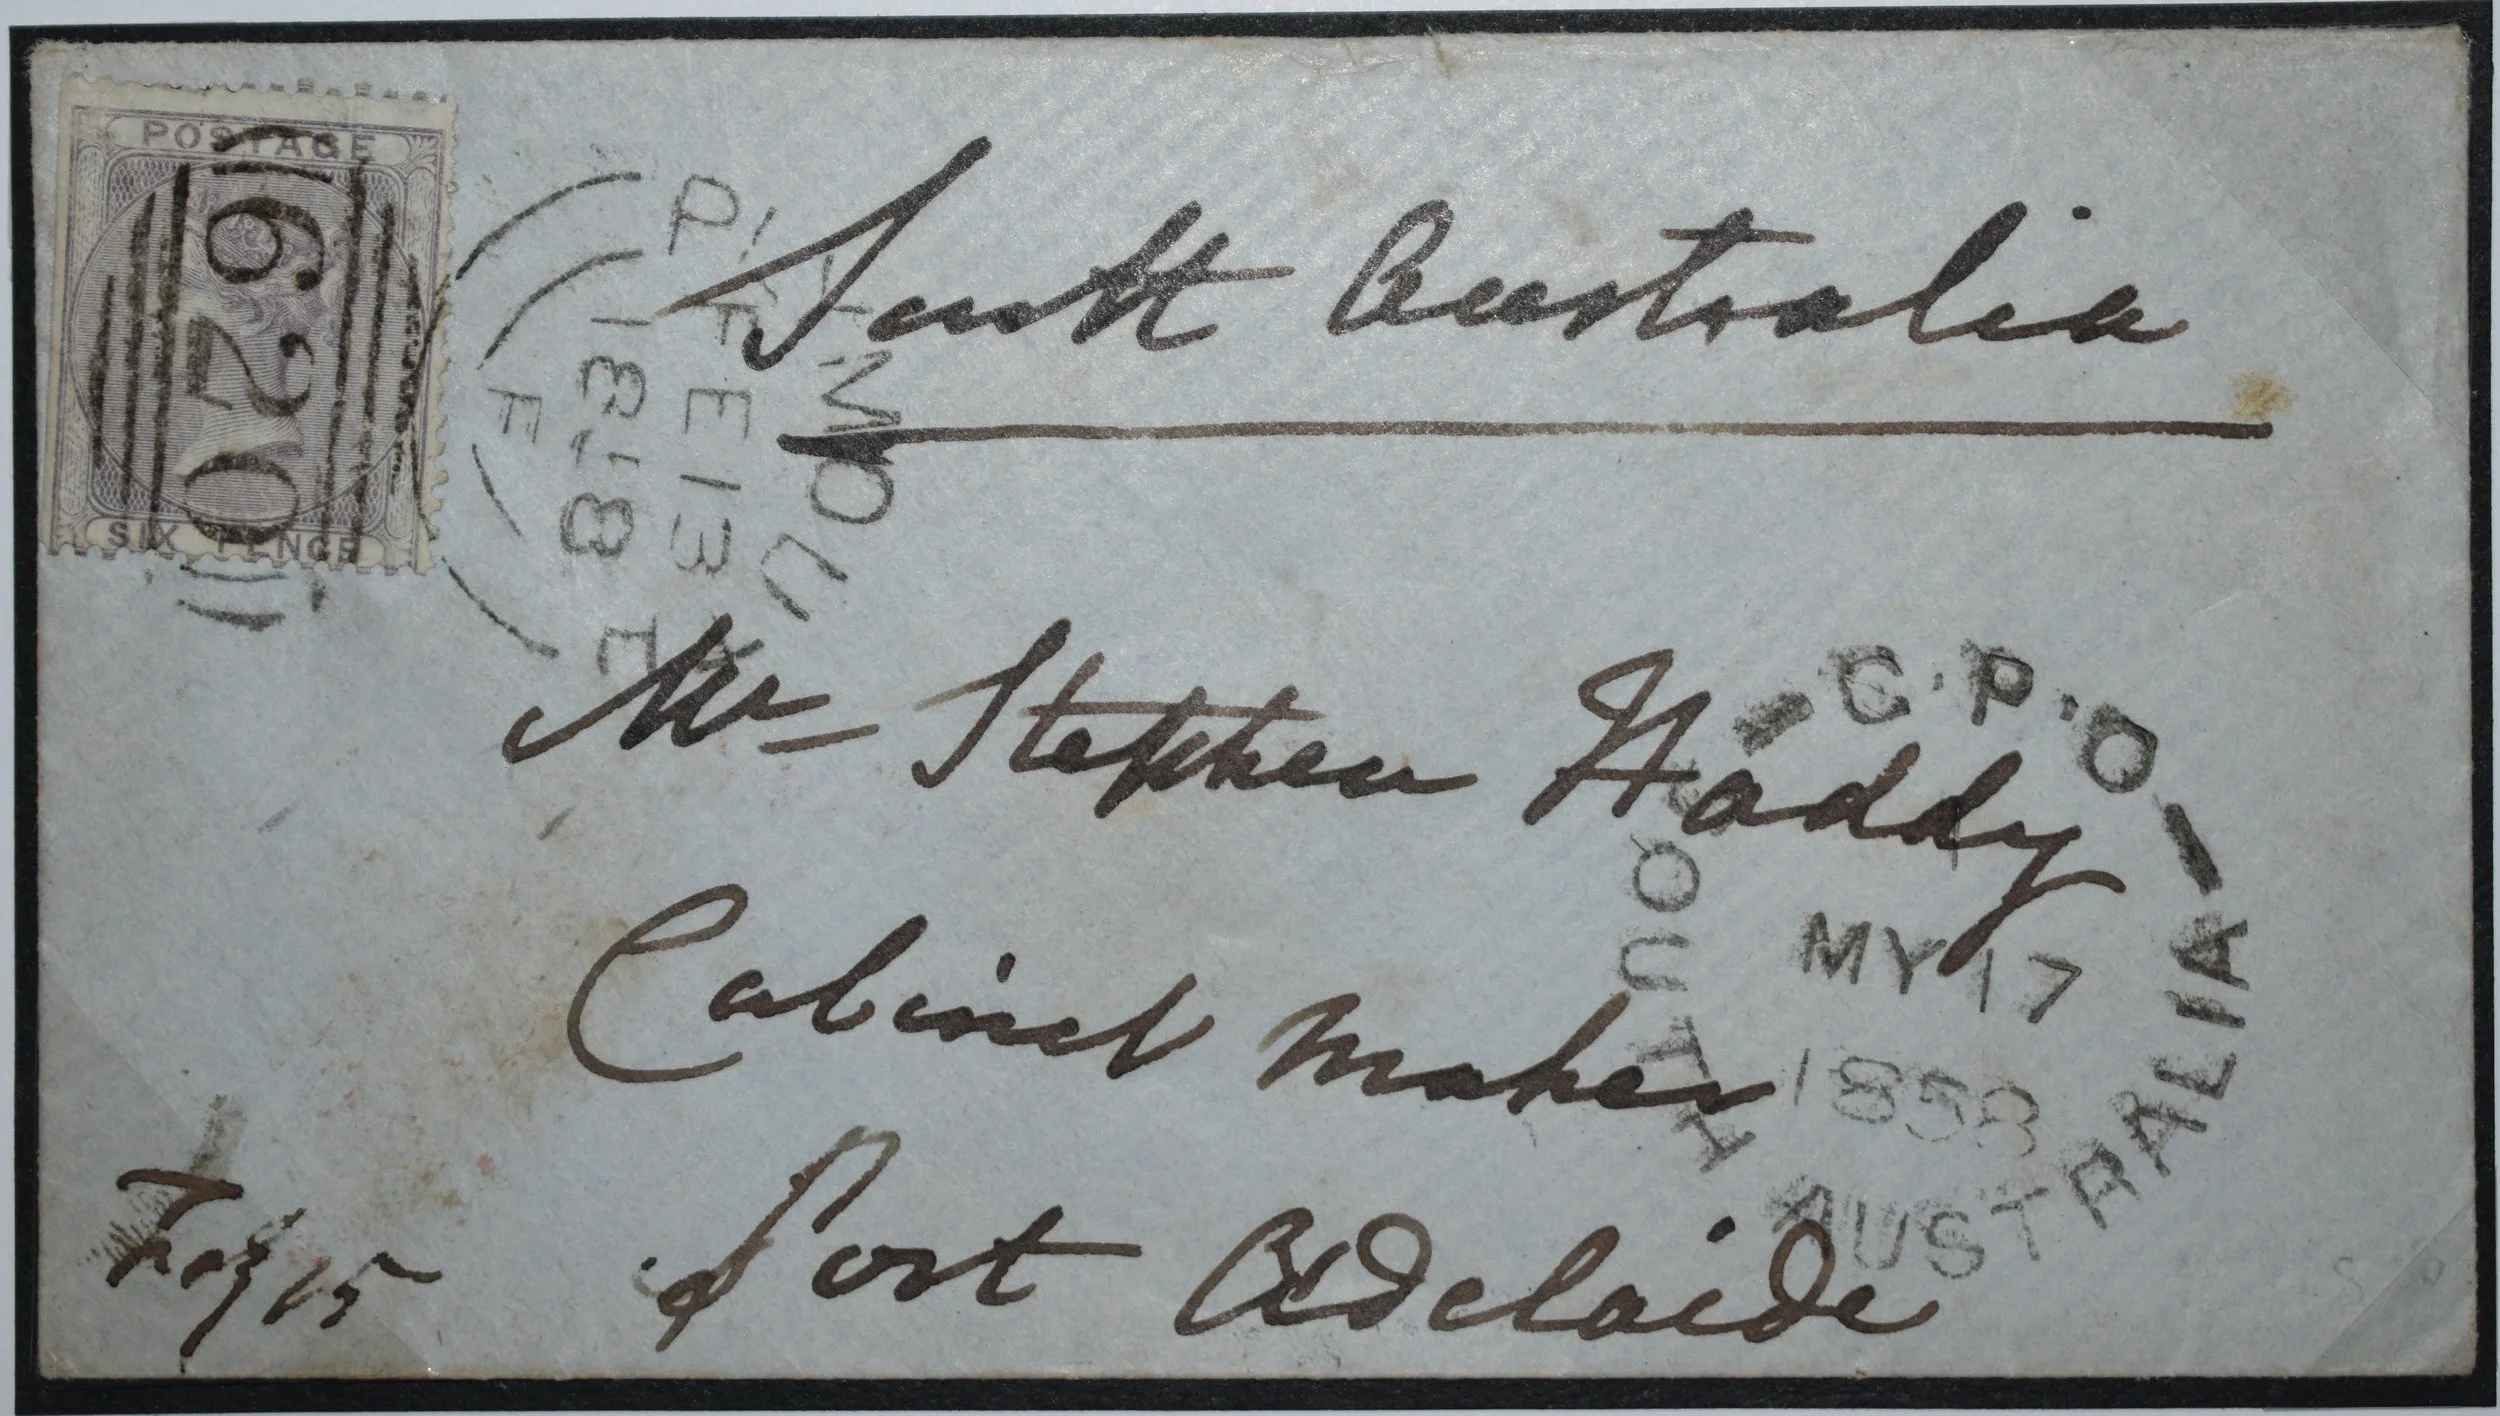 POSTAGE
620
SIX PENCE
PLYMOUTH
FE 13
1858
F
South Australia
Mr Stephen Haddy
Cabinet maker
Port Adelaide
G.P.O
MY 17
1858
SOUTH AUSTRALIA
15